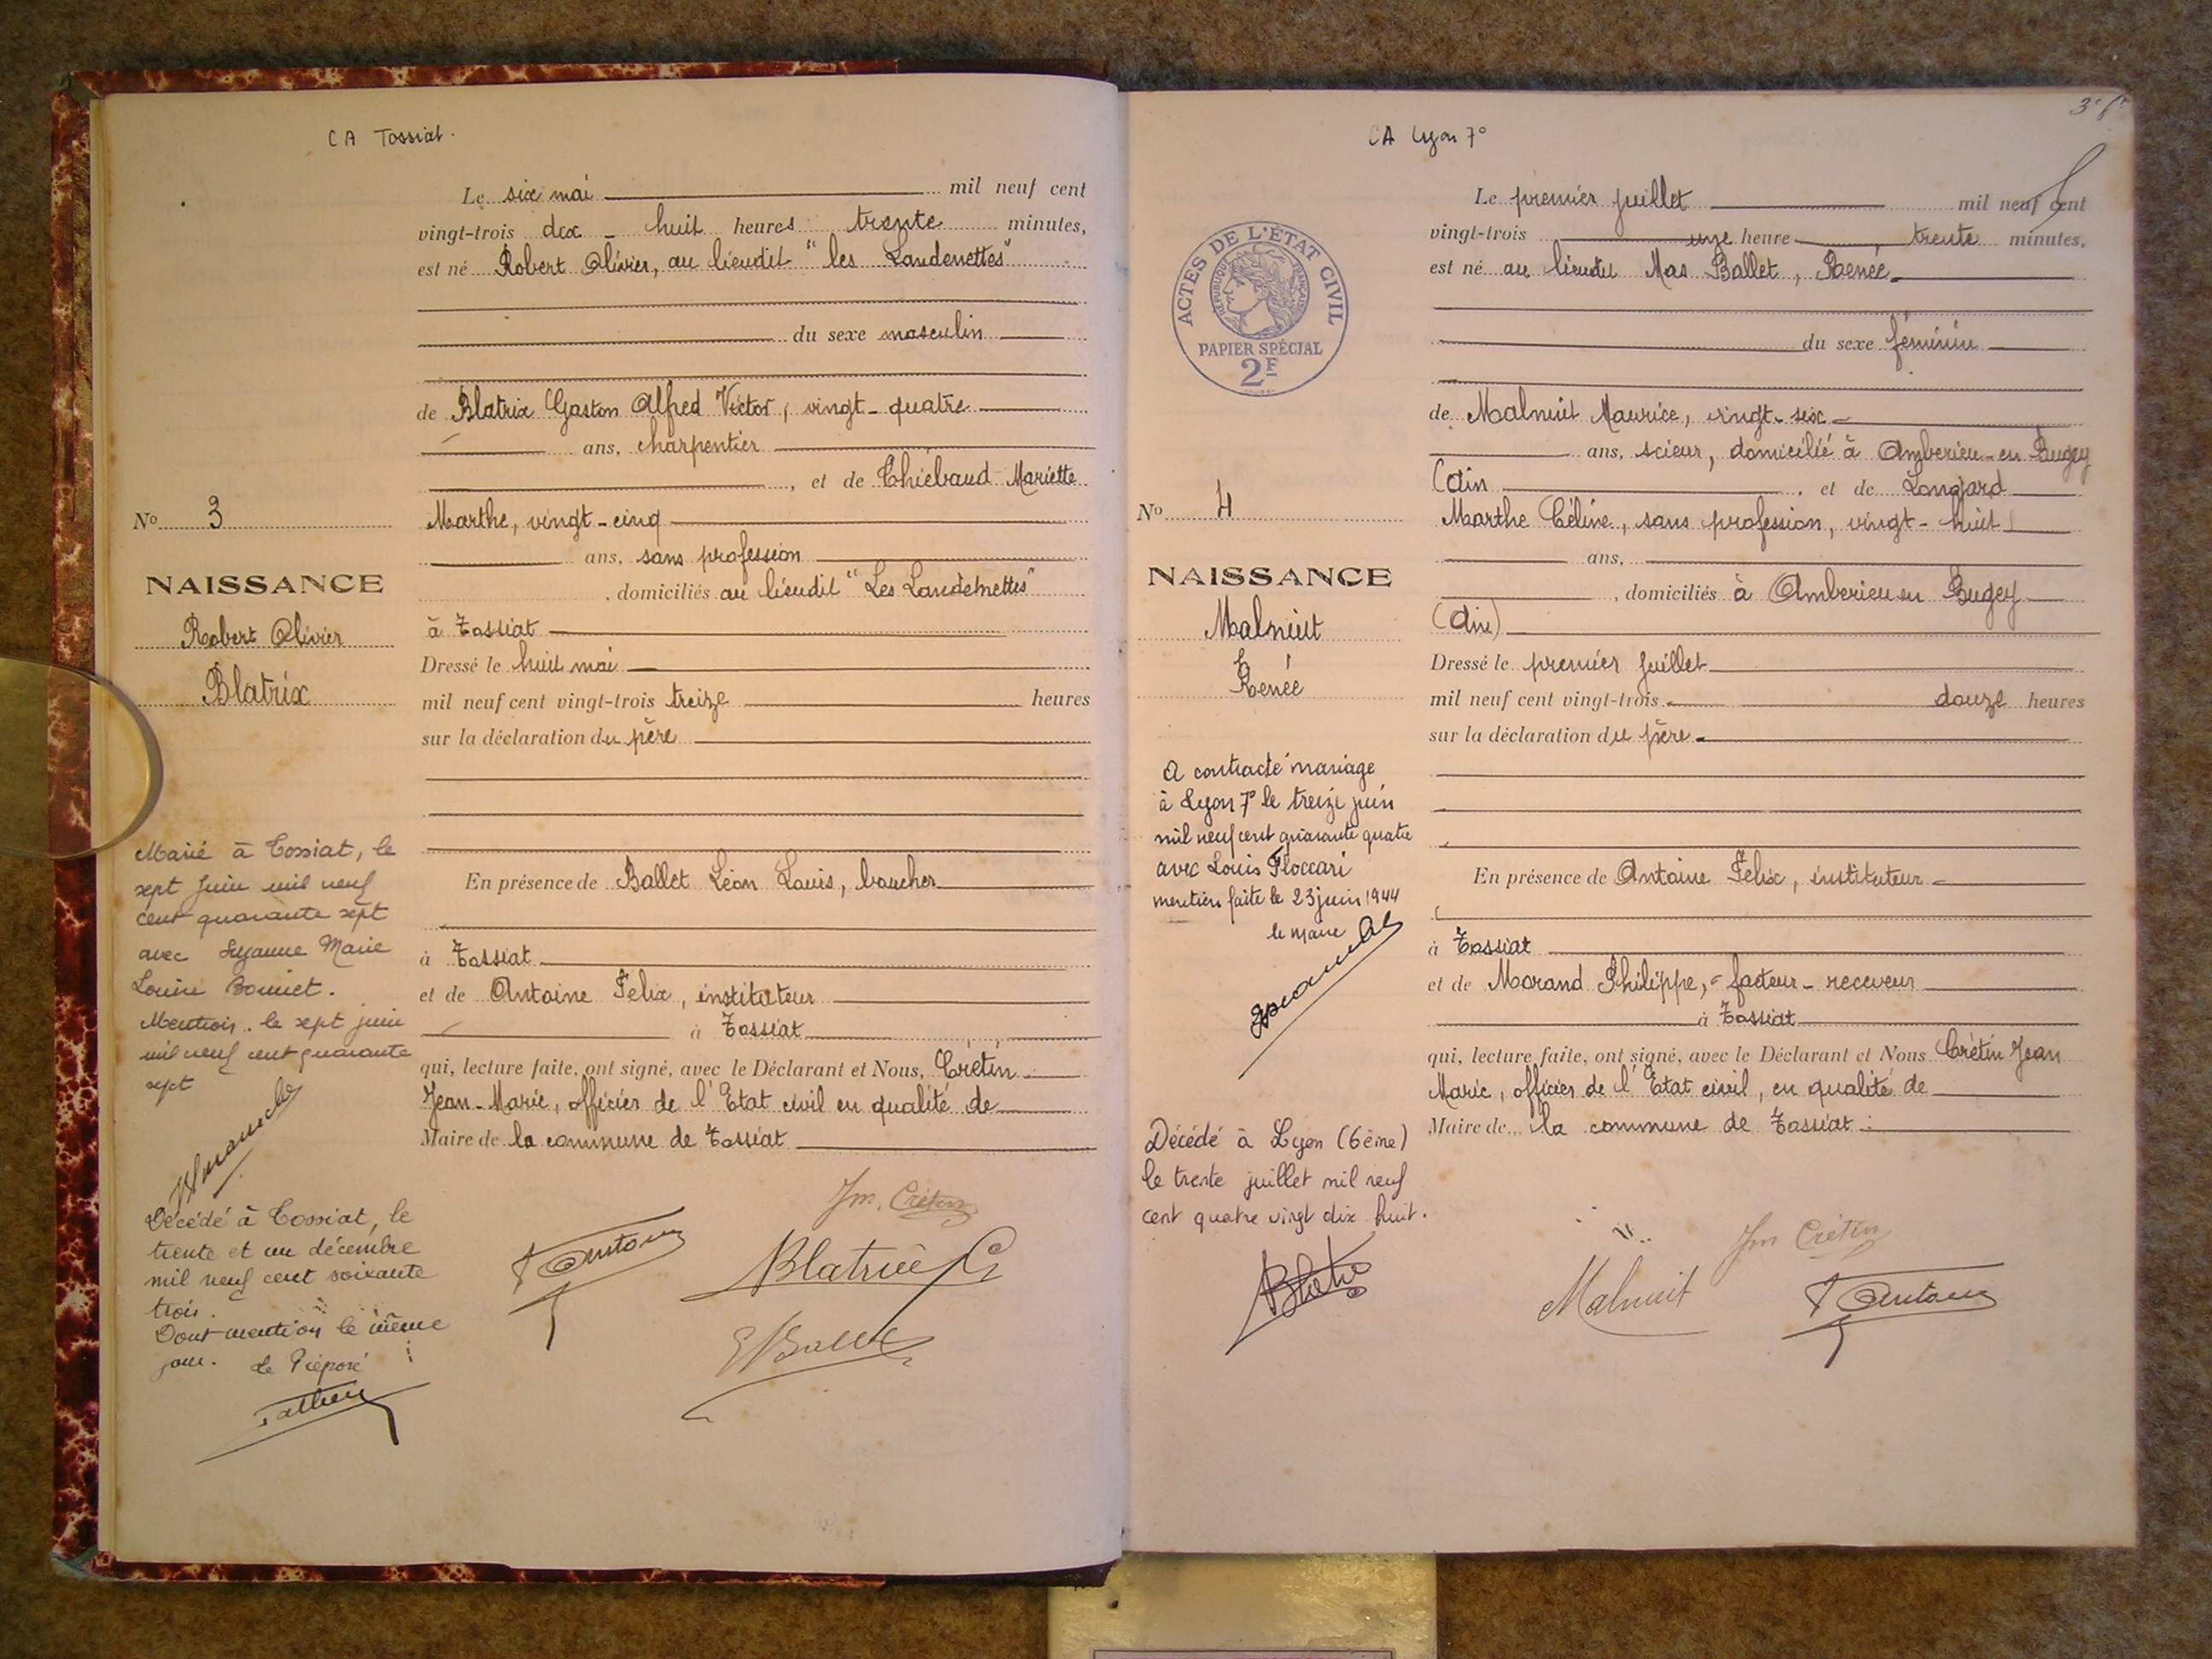 CA Tossiat.
Le six mai mil neuf cent
vingt-trois dix - huit heures trente minutes,
est né Robert Olivier, au lieudit "les Landenettes"
du sexe masculin
de Blatrix Gaston Alfred Victor, vingt-quatre
ans, charpentier
, et de Thiébaud Mariette
Marthe, vingt-cinq
ans, sans profession
, domiciliés au lieudit "Les Landenettes"
à Tossiat
Dressé le huit mai
mil neuf cent vingt-trois treize heures
sur la déclaration du père
En présence de Ballet Léon Louis, boucher
à Tossiat
et de Antoine Felix, instituteur
à Tossiat
qui, lecture faite, ont signé, avec le Déclarant et Nous, Crétin
Jean-Marie, officier de l'Etat civil en qualité de
Maire de la commune de Tossiat
No 3
NAISSANCE
Robert Olivier
Blatrix
Marié à Tossiat, le
sept juin mil neuf
cent quarante sept
avec Suzanne Marie
Louise Bonnet.
Mention. le sept juin
mil neuf cent quarante
sept
Décédé à Tossiat, le
trente et un décembre
mil neuf cent soixante
trois.
Dont mention le même
jour. Le Préposé
Jm. Crétin
F Antoine
Blatrix G
3e f
CA Lyon 7°
Le premier juillet mil neuf cent
vingt-trois une heure, trente minutes,
est né au lieudit Mas Ballet, Renée
du sexe féminin
de Malnuit Maurice, vingt-six
ans, scieur, domicilié à Amberieu-en Bugey
(Ain , et de Longard
Marthe Céline, sans profession, vingt-huit
ans,
, domiciliés à Amberieu en Bugey
(Ain)
Dressé le premier juillet
mil neuf cent vingt-trois douze heures
sur la déclaration du père
En présence de Antoine Felix, instituteur
à Tossiat
et de Morand Philippe, facteur-receveur
à Tossiat
qui, lecture faite, ont signé, avec le Déclarant et Nous Crétin Jean
Marie, officier de l'Etat civil, en qualité de
Maire de la commune de Tossiat
ACTES DE L'ÉTAT CIVIL
RÉPUBLIQUE FRANÇAISE
PAPIER SPÉCIAL
2F
No 4
NAISSANCE
Malnuit
Renée
A contracté mariage
à Lyon 7° le treize juin
mil neuf cent quarante quatre
avec Louis Floccari
mention faite le 23 juin 1944
le maire
Décédé à Lyon (6ème)
le trente juillet mil neuf
cent quatre vingt dix huit.
Jm Crétin
Malnuit
F Antoine